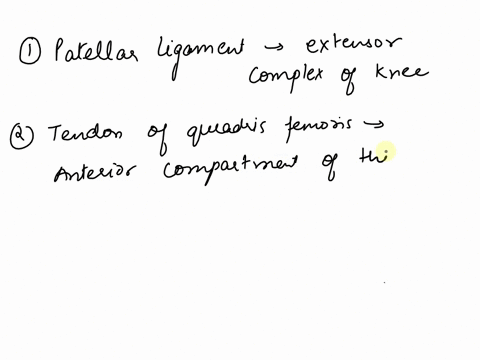 ① Patellar ligament → extensor
complex of knee
② Tendon of quadris femoris →
Anterior compartment of thi